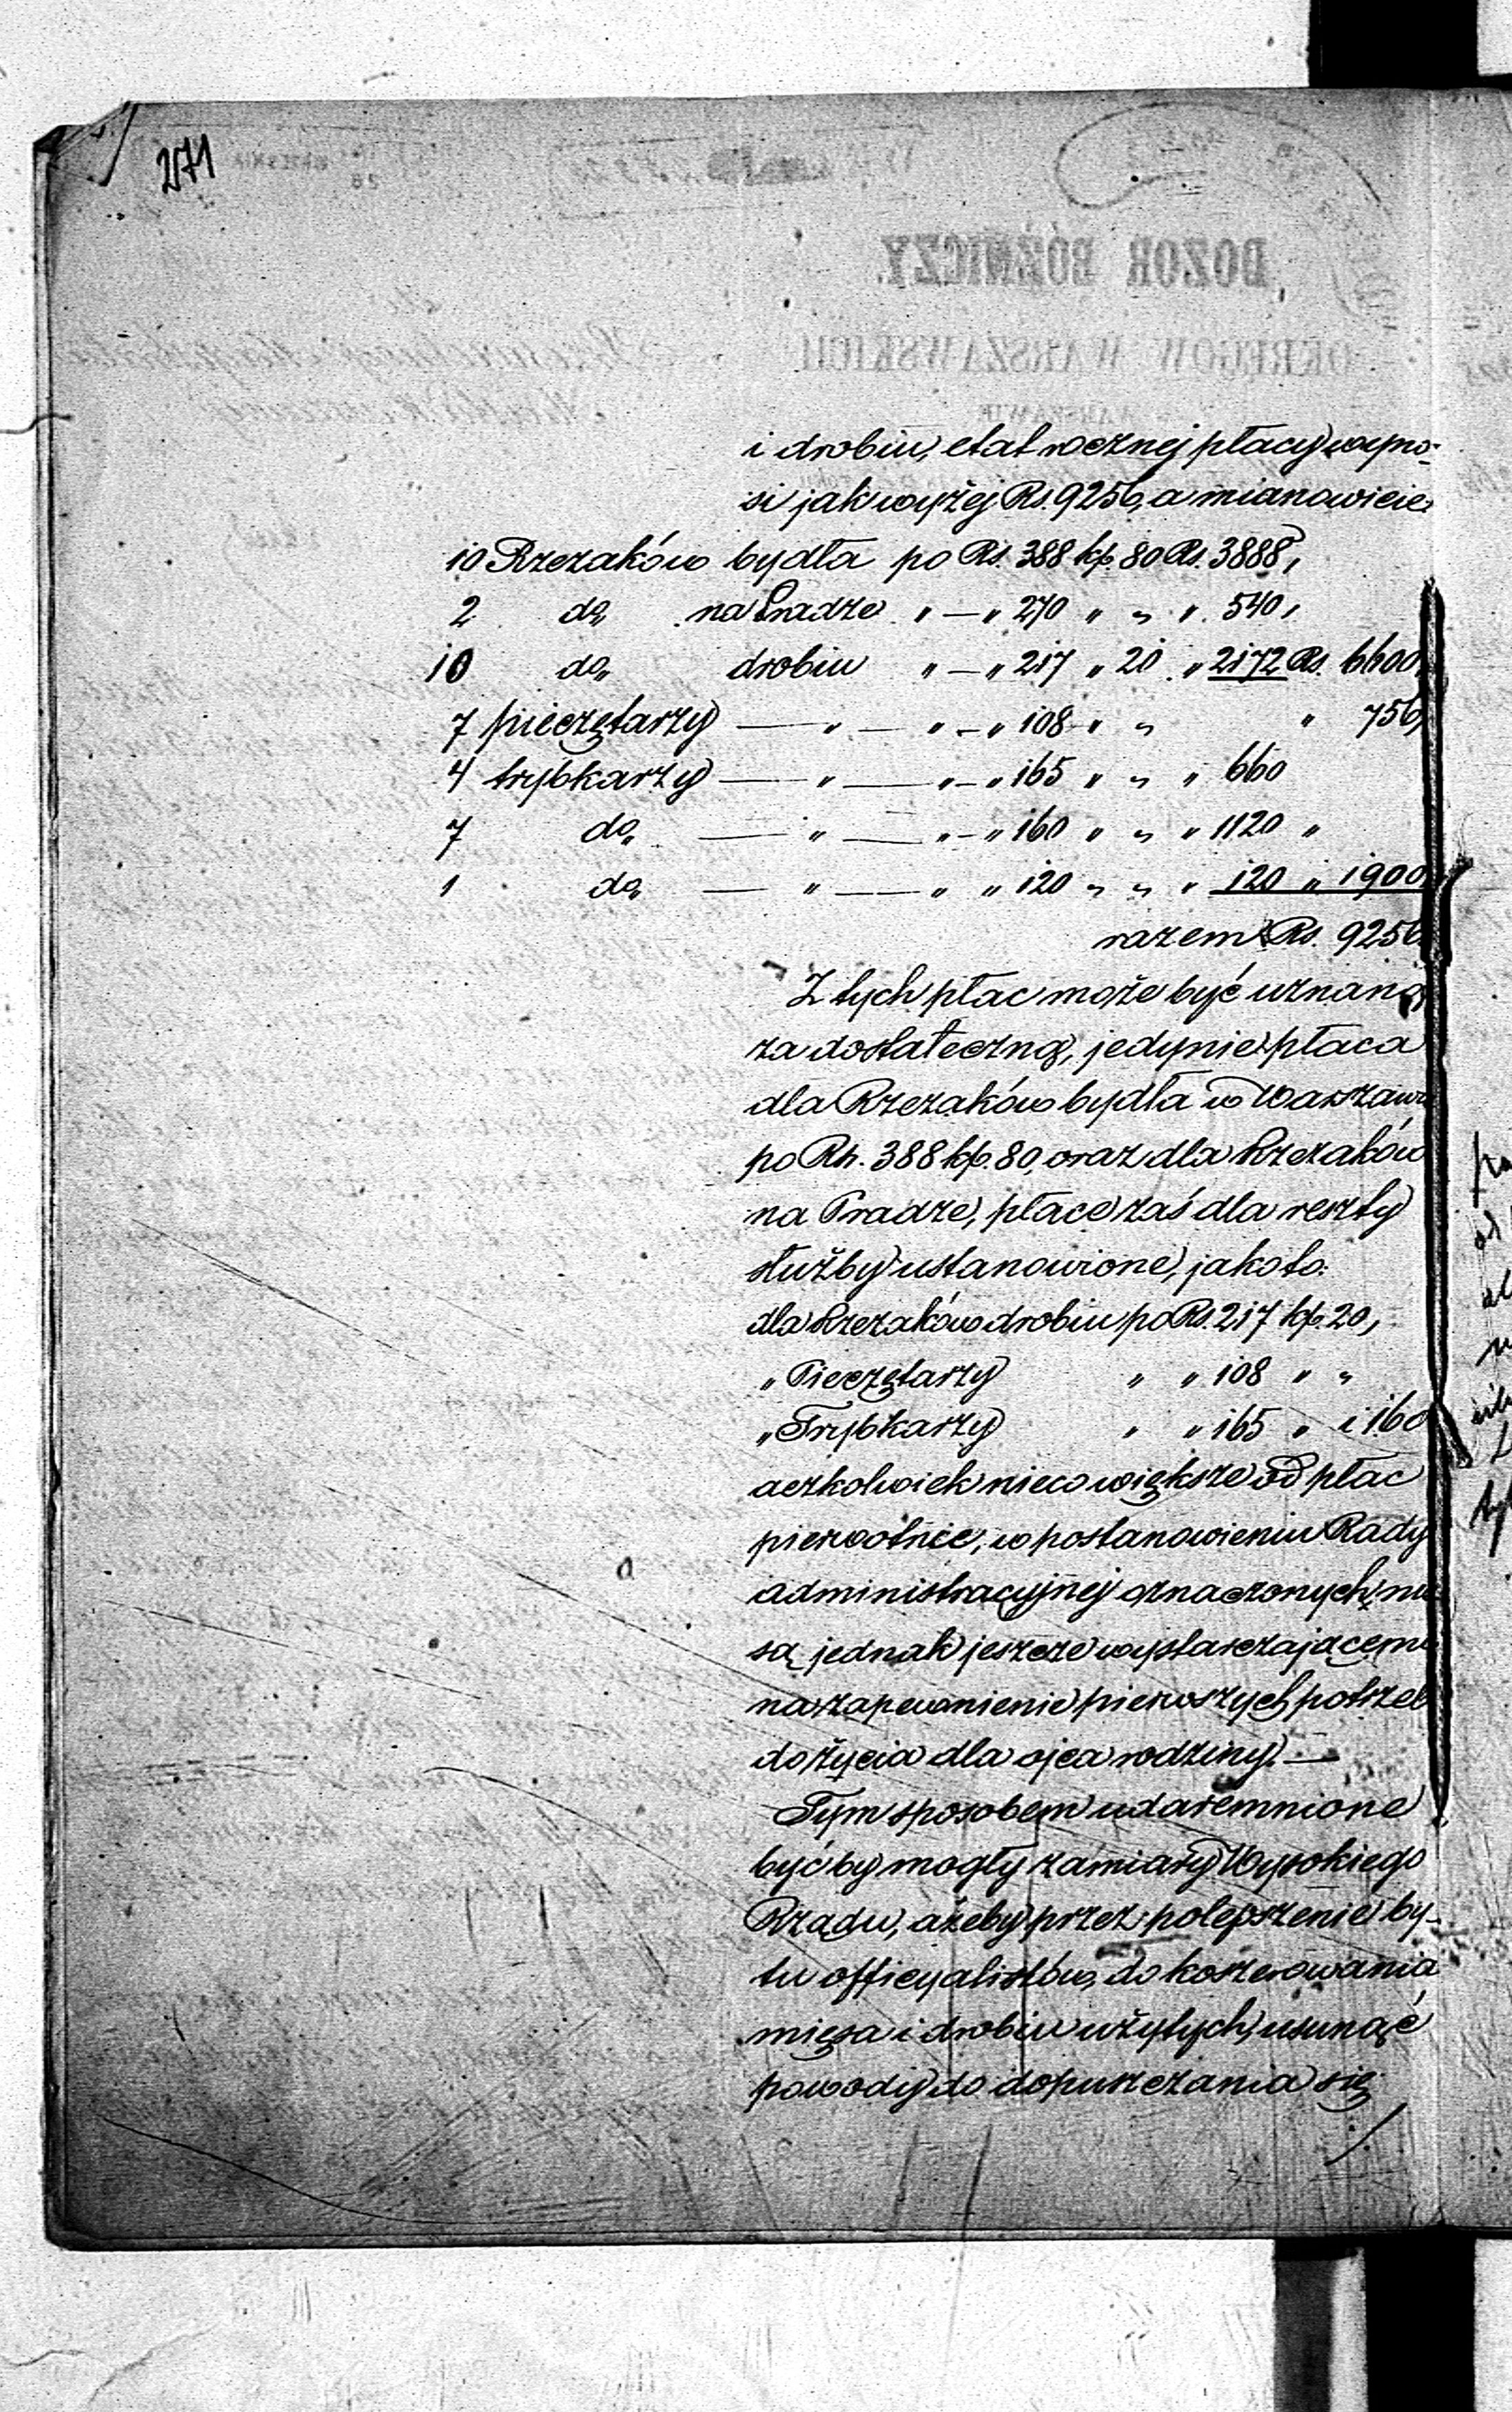 271
i drobiu, etat rocznej płacy wyno-
si jak wyżej Rs. 9256, a mianowicie:
10 Rzezaków bydła po Rs. 388 kp. 80 Rs. 3888,
2 do, na Pradze " — " 270 " " " 540,
10 do, drobiu " — " 217 " 20 " 2172 Rs. 6600,
7 pieczętarzy — " — " — " 108 " " " 756,
4 trybkarzy — " — " — " 165 " " " 660
7 do, — " — " — " 160 " " " 1120 "
1 do, — " — " " 120 " " " 120 " 1900
razem Rs. 9256
Z tych płac może być uznaną
za dostateczną, jedynie płaca
dla Rzezaków bydła w Warszawi
po Rs. 388 kp. 80, oraz dla Rzezaków
na Pradze, płace zaś dla reszty
służby ustanowione, jako to:
dla Rzezaków drobiu po Rs. 217 kp. 20,
" Pieczętarzy " " 108 " "
" Trybkarzy " " 165 " i 160
aczkolwiek nieco większe od płac
pierwotnie, w postanowieniu Rady
administracyjnej oznaczonych, nie
są jednak jeszcze wystarczającemi
na zapewnienie pierwszych potrzeb
do życia dla ojca rodziny. —
Tym sposobem udaremnione
być by mogły zamiary Wysokiego
Rządu, ażeby przez polepszenie by-
tu officyalistów, do koszerowania
mięsa i drobiu użytych, usunąć
powody do dopuszczania się